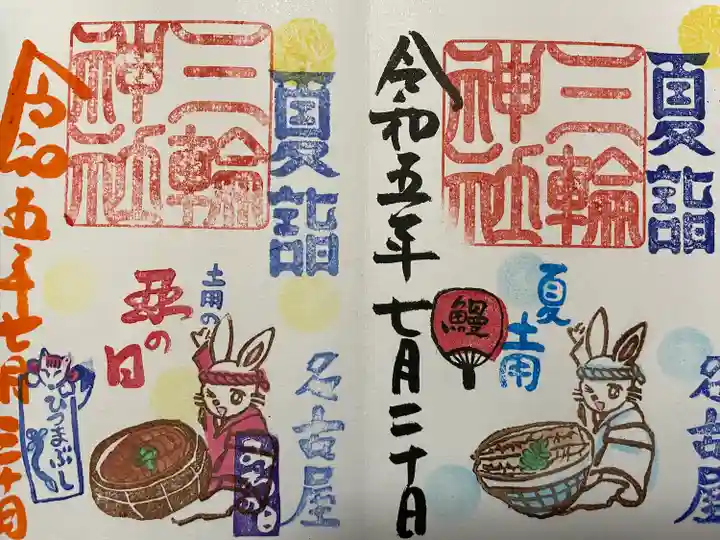 夏詣
三輪
神社
夏
土用
鰻
名古屋
令和五年七月二十日
夏詣
三輪
神社
土用の
丑の日
名古屋
ひつまぶし
令和五年七月三十日